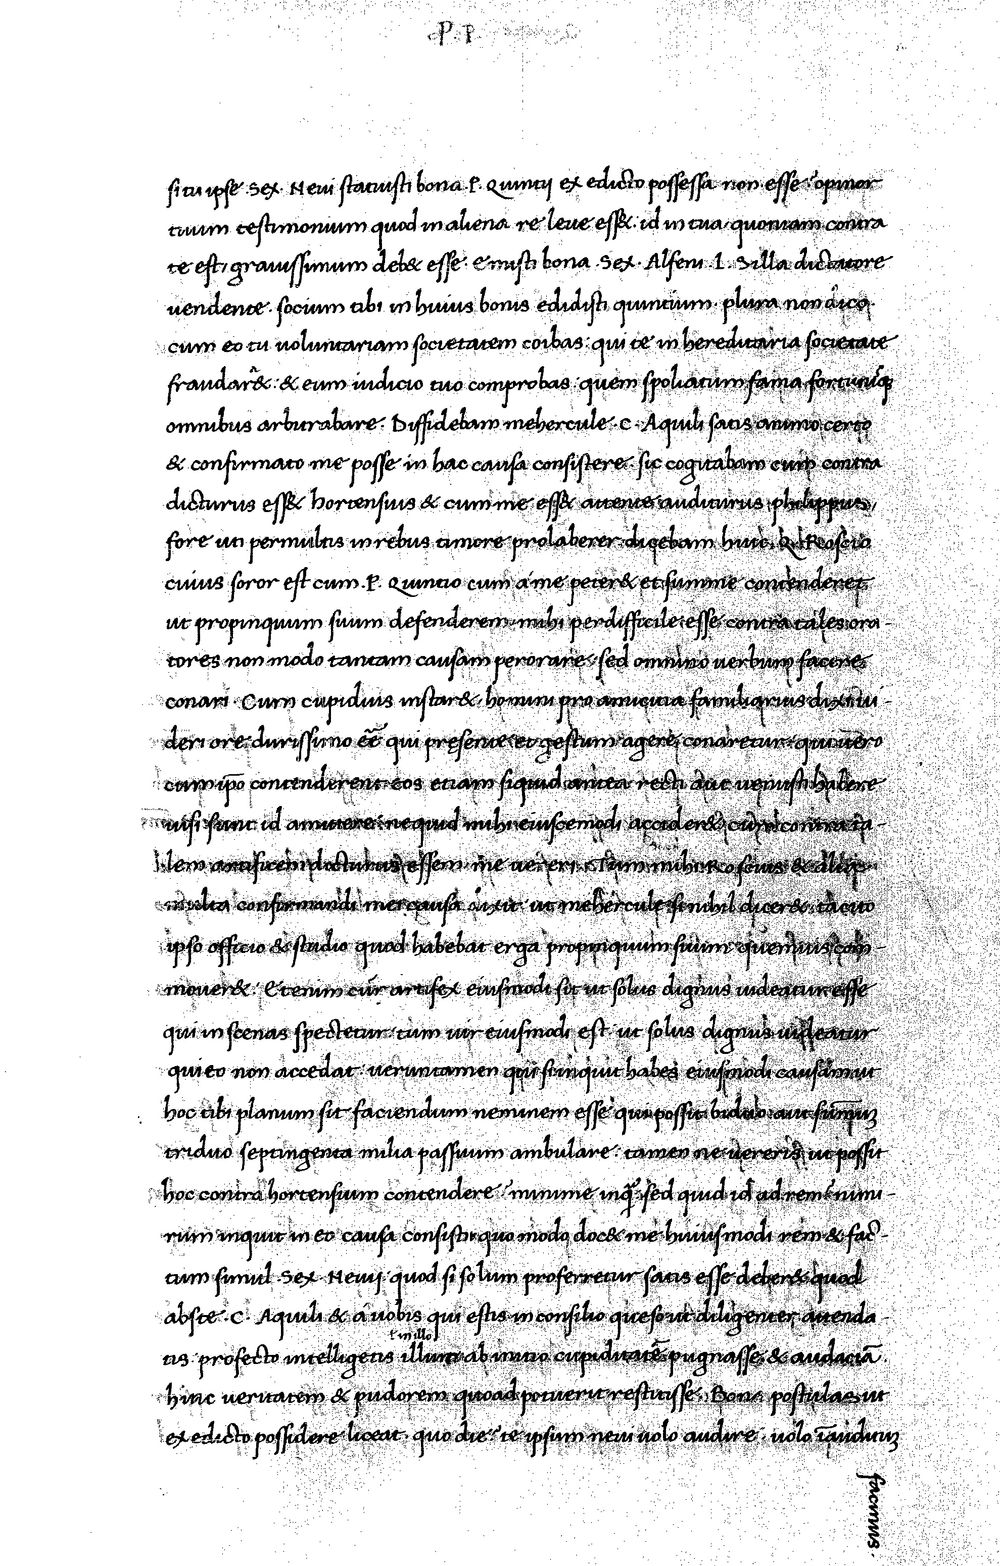 P. P.
si tu ipse Sex. Nevi statuisti bona P. Quintij ex edicto possessa non esse: opinor
tuum testimonium quod in aliena re leve ess& id in tua quoniam contra
te est, gravissimum deb& esse. Emisti bona Sex. Alfeni L. Silla dictatore
vendente. socium tibi in huius bonis edidisti quintium. plura non dico.
cum eo tu voluntariam societatem coibas: qui te in hereditaria societate
fraudar&: & eum iudicio tuo comprobas quem spoliatum fama fortunisq
omnibus arbitrabare. Diffidebam mehercule. C. Aquili satis animo certo
& confirmato me posse in hac causa consistere. sic cogitabam cum contra
dicturus ess& hortensius & cum me ess& attente auditurus philippus,
fore uti permultis in rebus timore prolaberer. dicebam huic Q. Roscio
cuius soror est cum P. Quintio cum a me peter& et summe contenderet
ut propinquum suum defenderem mihi perdifficile esse contra tales ora-
tores non modo tantam causam perorare, sed omnino verbum facere
conari. Cum cupidius instar& homini pro amicitia familiarius dixi vi-
deri ore durissimo eē qui presente eo gestum agere conaretur. qui vero
cum ipō contenderent eos etiam siquid antea recti aut venusti habere
visi sunt id amittere. nequid mihi eiuscemodi accider& cum contra ta-
lem artificem dicturus essem me vereri. Tum mihi Roscius & alia
multa confirmandi mei causa dixit: ut mehercule si nihil dicer& tacito
ipso officio & studio quod habebat erga propinquum suum quemvis com-
mover&. Etenim cūr artifex eiusmodi sit ut solus dignus videatur esse
qui in scenas spectetur: tum vir eiusmodi est ut solus dignus videatur
qui eo non accedat. veruntamen quid si inquit habes eiusmodi causam ut
hoc tibi planum sit faciendum neminem esse qui possit biduo aut summū
triduo septingenta milia passuum ambulare. tamen ne vereris ut possit
hoc contra hortensium contendere? minime inq̄. sed quid id ad rem? nimi-
rum inquit in eo causa consistit. quo modo doc& me huiusmodi rem & fac-
tum simul Sex. Nevij quod si solum proferretur satis esse deber& quod
abste. C. Aquili & a vobis qui estis in consilio queso ut diligenter attenda-
in illo
tis. profecto intelligetis illum ab initio cupiditatē pugnasse & audaciā.
hinc veritatem & pudorem quoad potuerit restitisse. Bona postulas ut
ex edicto possidere liceat. quo die? te ipsum nevi volo audire. volo īauditum
facinus.